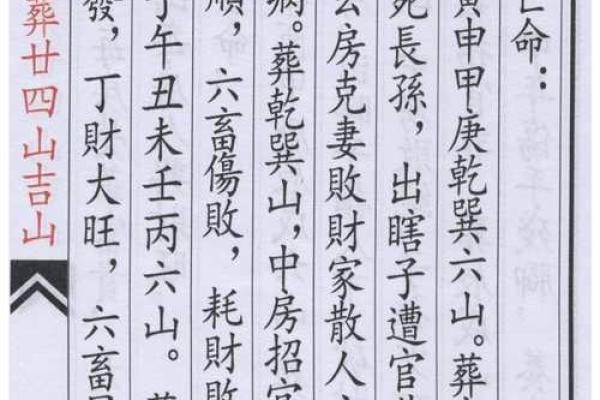 亡命：
寅申甲庚乾巽六山。葬
死長孫，出瞎子遭官
房克妻敗財家散人
病。葬乾巽山，中房招
順，六畜傷敗，耗財敗
子午丑未壬丙六山。葬
發，丁財大旺，六畜
葬廿四山吉山